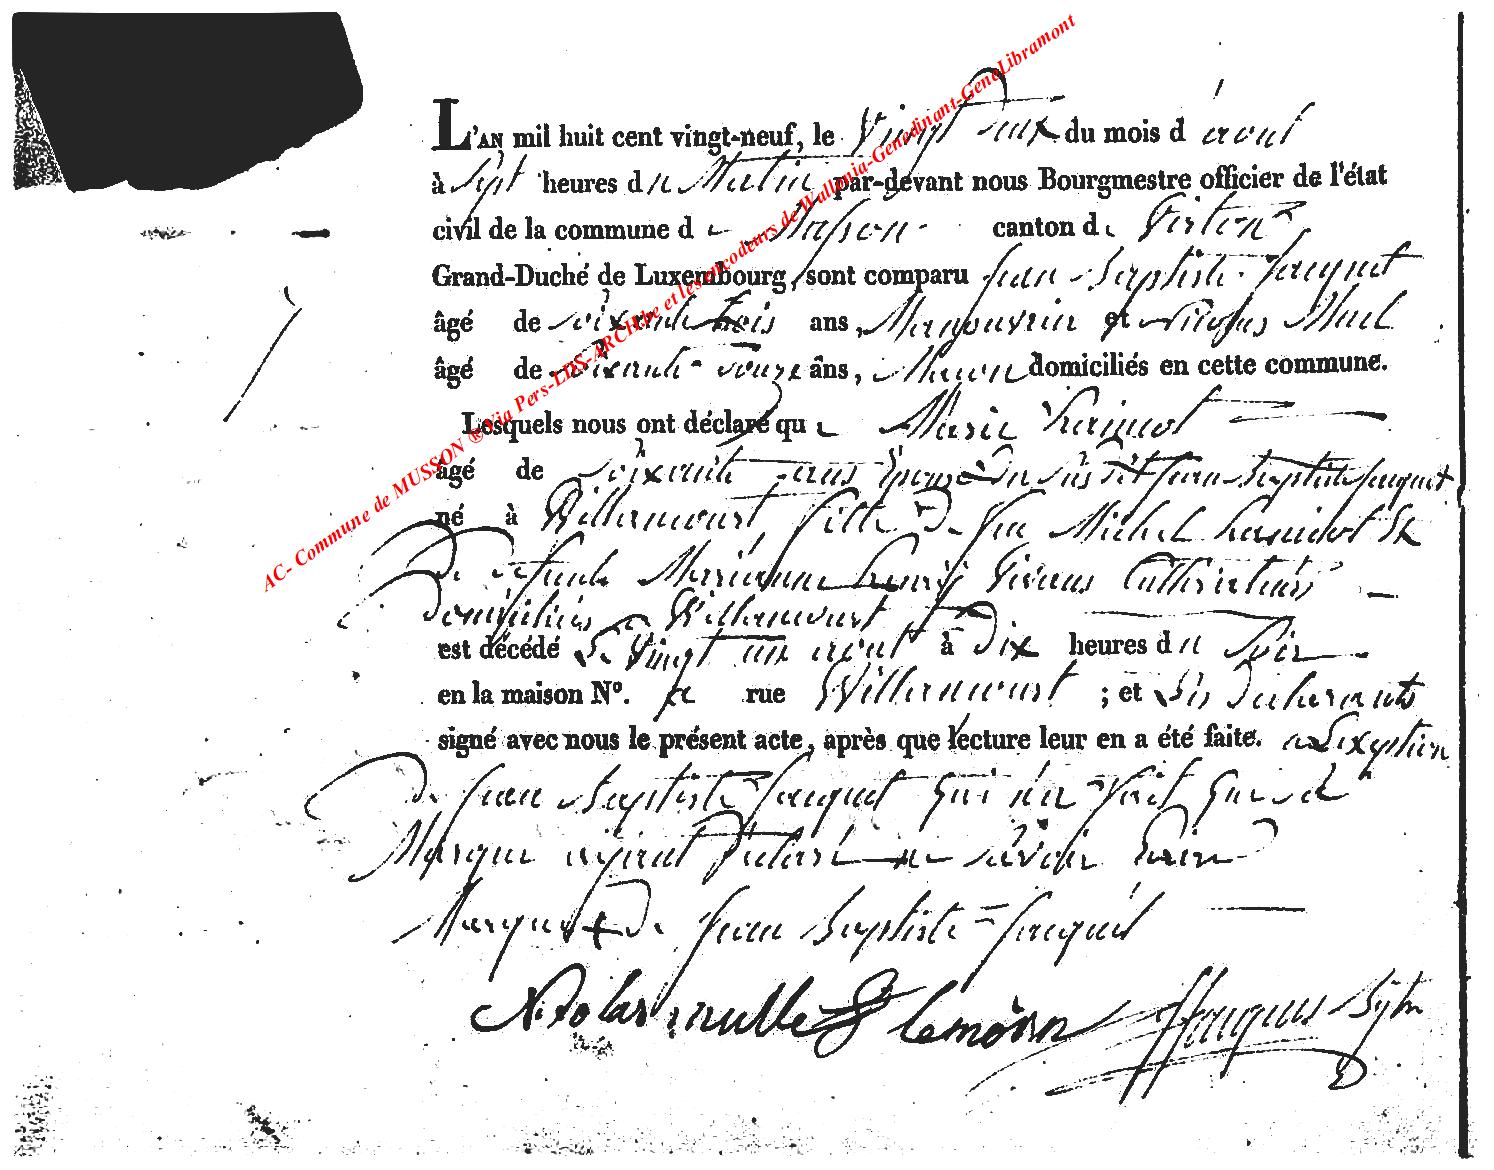 L'AN mil huit cent vingt-neuf, le Vingt Deux du mois d'aout
à Sept heures du Matin par-devant nous Bourgmestre officier de l'état
civil de la commune de Musson canton de Virton
Grand-Duché de Luxembourg, sont comparu Jean Baptiste Jacquet
âgé de soixante trois ans, Manouvrier et Nicolas
âgé de soixante Douze ans, Maçon domiciliés en cette commune.
Lesquels nous ont déclaré que Marie
âgé de soixante ans Epouse Du susdit Jean Baptiste Jacquet
né à Willancourt, fille De feu Michel Et
De defunte Marianne Henry Vivans Cultivateurs
Domiciliés a Willancourt
est décédé Le Vingt un aout à Dix heures du Soir
en la maison Nº. rue Willancourt ; et Les Declarants
signé avec nous le présent acte, après que lecture leur en a été faite. a Lexeption
De Jean Baptiste Jacquet qui n'a fait que sa
Marque ayant Déclaré ne savoir Ecrire
Marque + De Jean Baptiste = Jacquet
Nicolas mulle lemoin
AC- Commune de MUSSON ® Via Pers-LDS-ARCH.be et les encodeurs de Wallonia-Genedinant-GeneLibramont